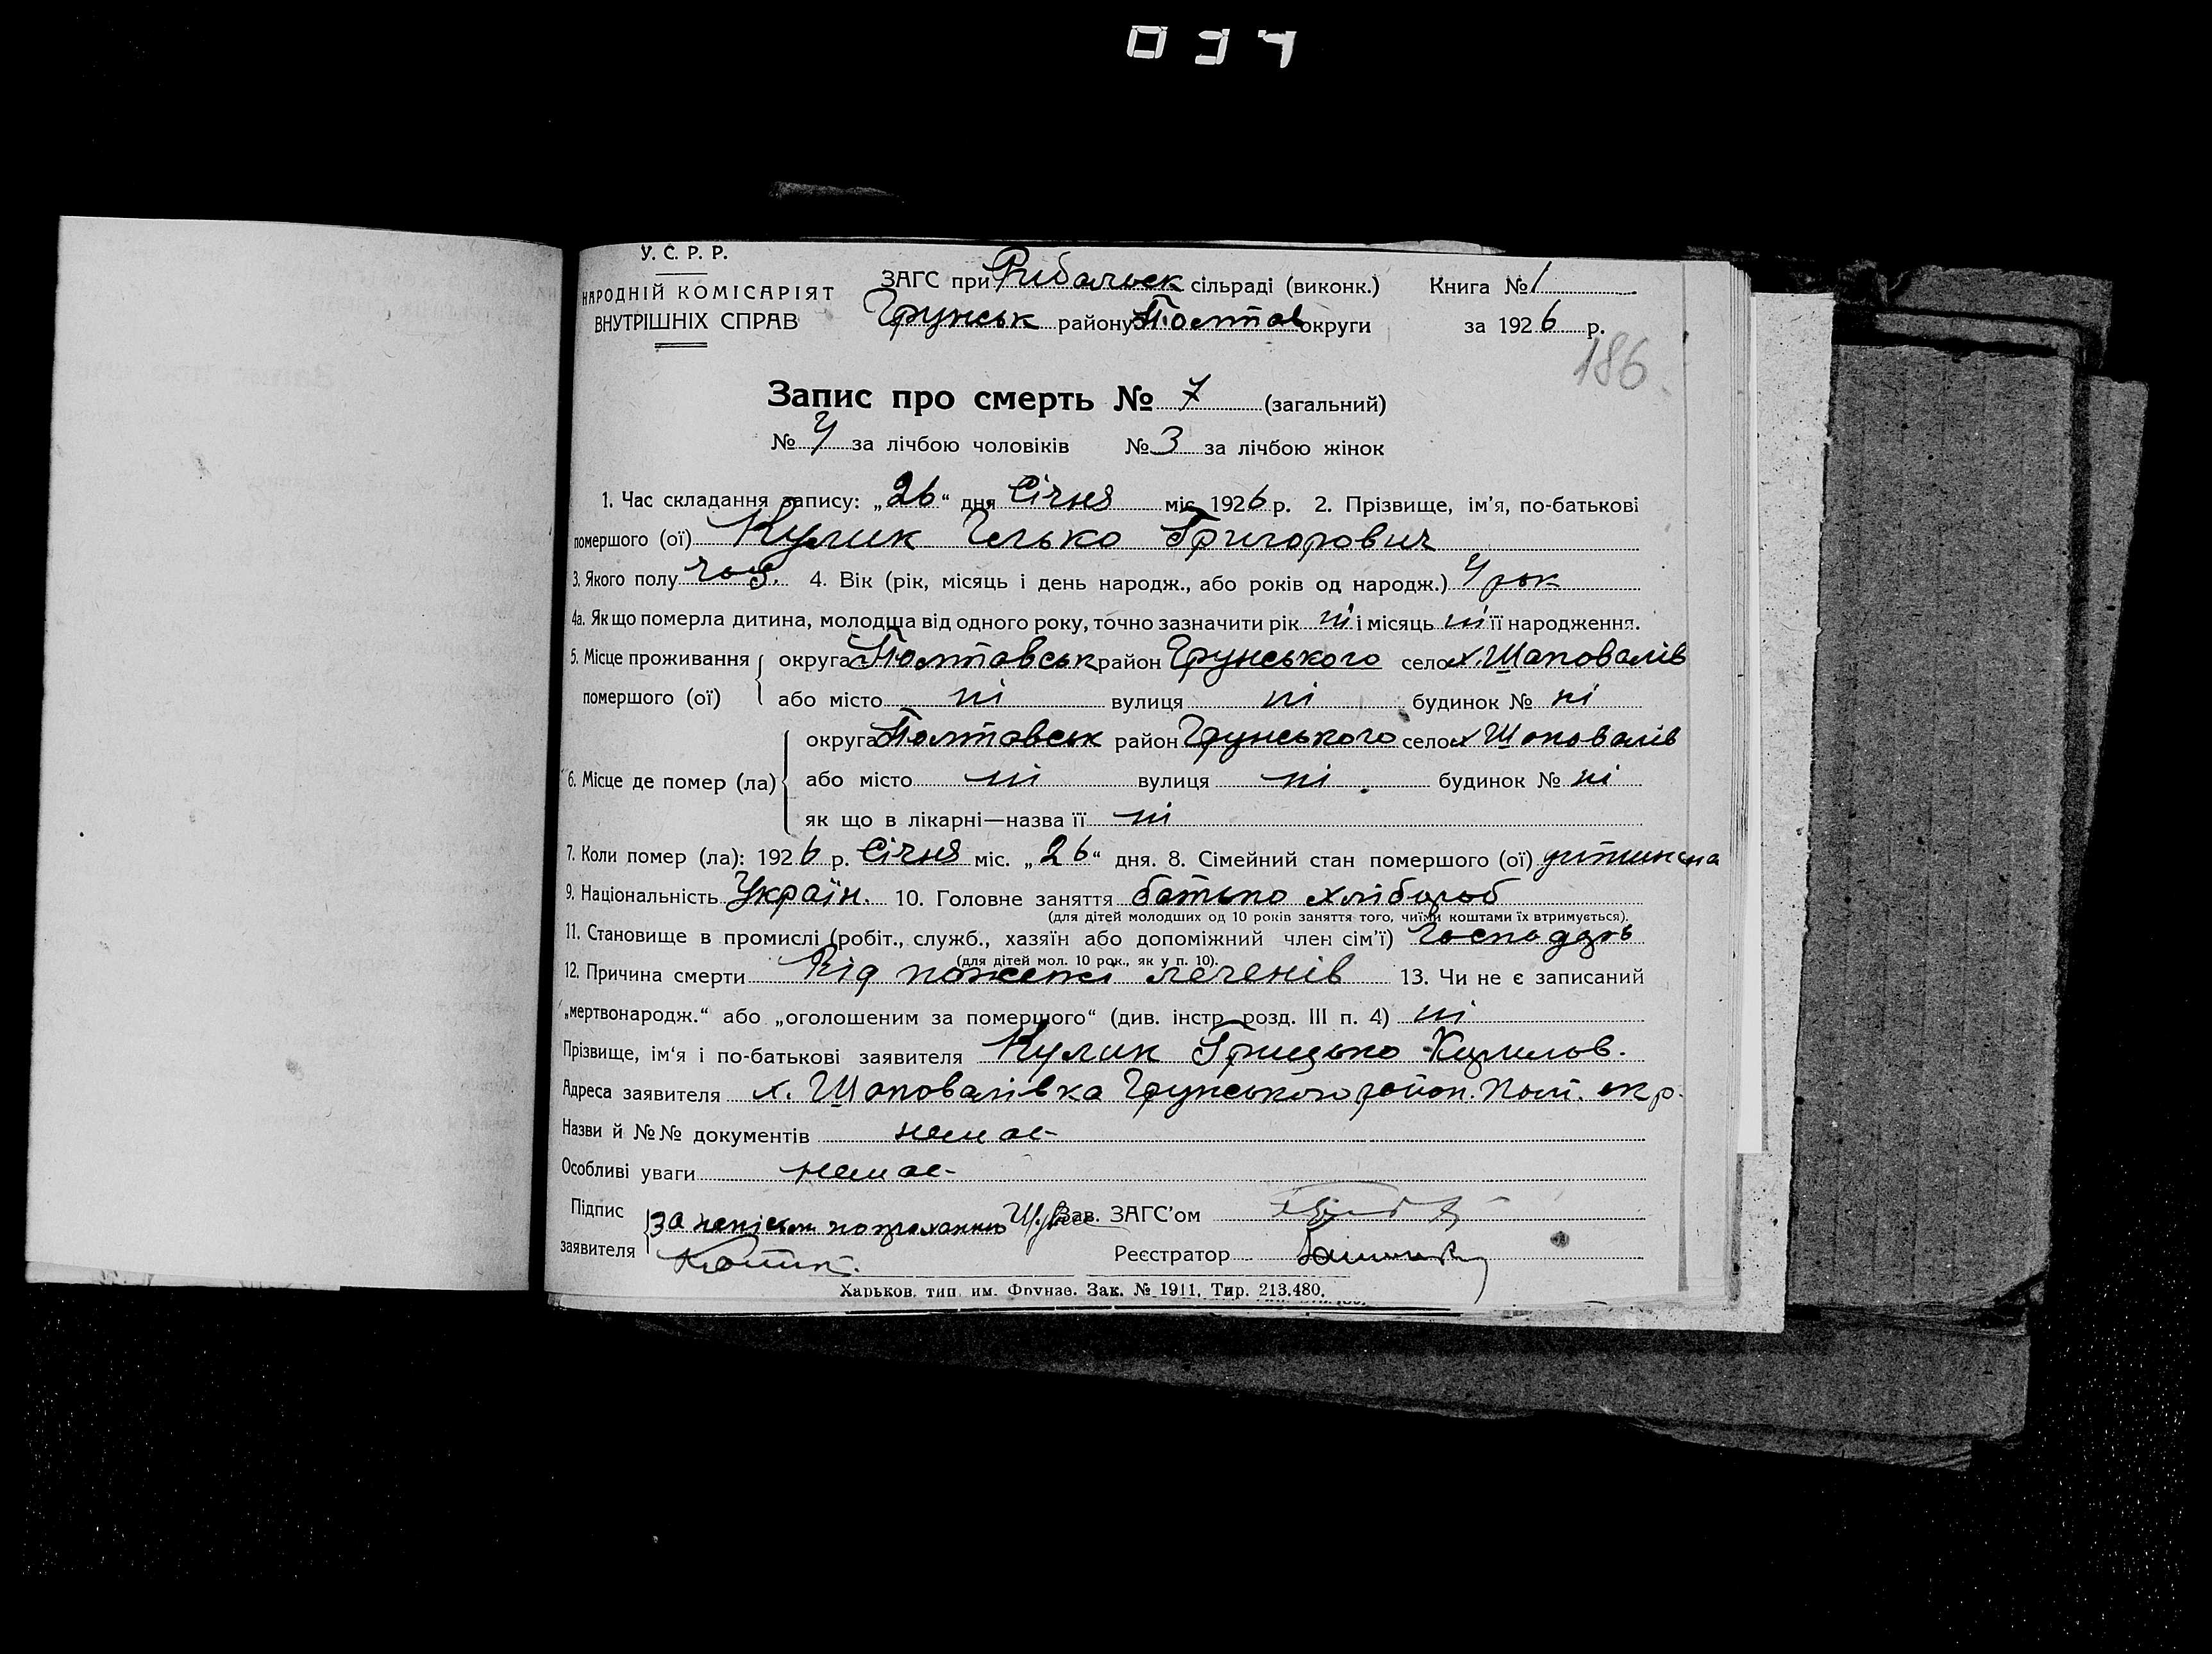 034
У. С. Р. Р.
НАРОДНІЙ КОМІСАРІЯТ
ВНУТРІШНІХ СПРАВ
ЗАГС при Рибальськ сільраді (виконк.) Книга № 1
Грунськ району Полтав округи за 1926 р.
186.
Запис про смерть № 7 (загальний)
№ 4 за лічбою чоловіків № 3 за лічбою жінок
1. Час складання запису: „26“ дня Січня міс. 1926 р. 2. Прізвище, ім'я, по-батькові
помершого (ої) Кулик Ілько Григорович
3. Якого полу чол. 4. Вік (рік, місяць і день народж., або років од народж.) 4 рок
4а. Якщо померла дитина, молодша від одного року, точно зазначити рік ні і місяць ні її народження.
5. Місце проживання помершого (ої) округа Полтавськ район Грунського село х. Шаповалів
або місто ні вулиця ні будинок № ні
6. Місце де помер (ла) округа Полтавськ район Грунського село х Шаповалів
або місто ні вулиця ні будинок № ні
як що в лікарні—назва її ні
7. Коли помер (ла): 1926 р. Січня міс. „26“ дня. 8. Сімейний стан помершого (ої)
9. Національність Україн. 10. Головне заняття батько хлібороб
(для дітей молодших од 10 років заняття того, чиїми коштами їх втримується).
11. Становище в промислі (робіт., служб., хазяїн або допоміжний член сім'ї) Господарь
(для дітей мол. 10 рок., як у п. 10).
12. Причина смерти Від легенів 13. Чи не є записаний
„мертвонародж.“ або „оголошеним за помершого“ (див. інстр. розд. III п. 4) ні
Прізвище, ім'я і по-батькові заявителя Кулик Грицько
Адреса заявителя х. Шаповалівка Грунського район. Пол. окр.
Назви й №№ документів немає
Особливі уваги немає
Підпис за Зав. ЗАГС'ом
заявителя Реєстратор
Харьков. тип. им. Фрунзе. Зак. № 1911. Тир. 213.480.